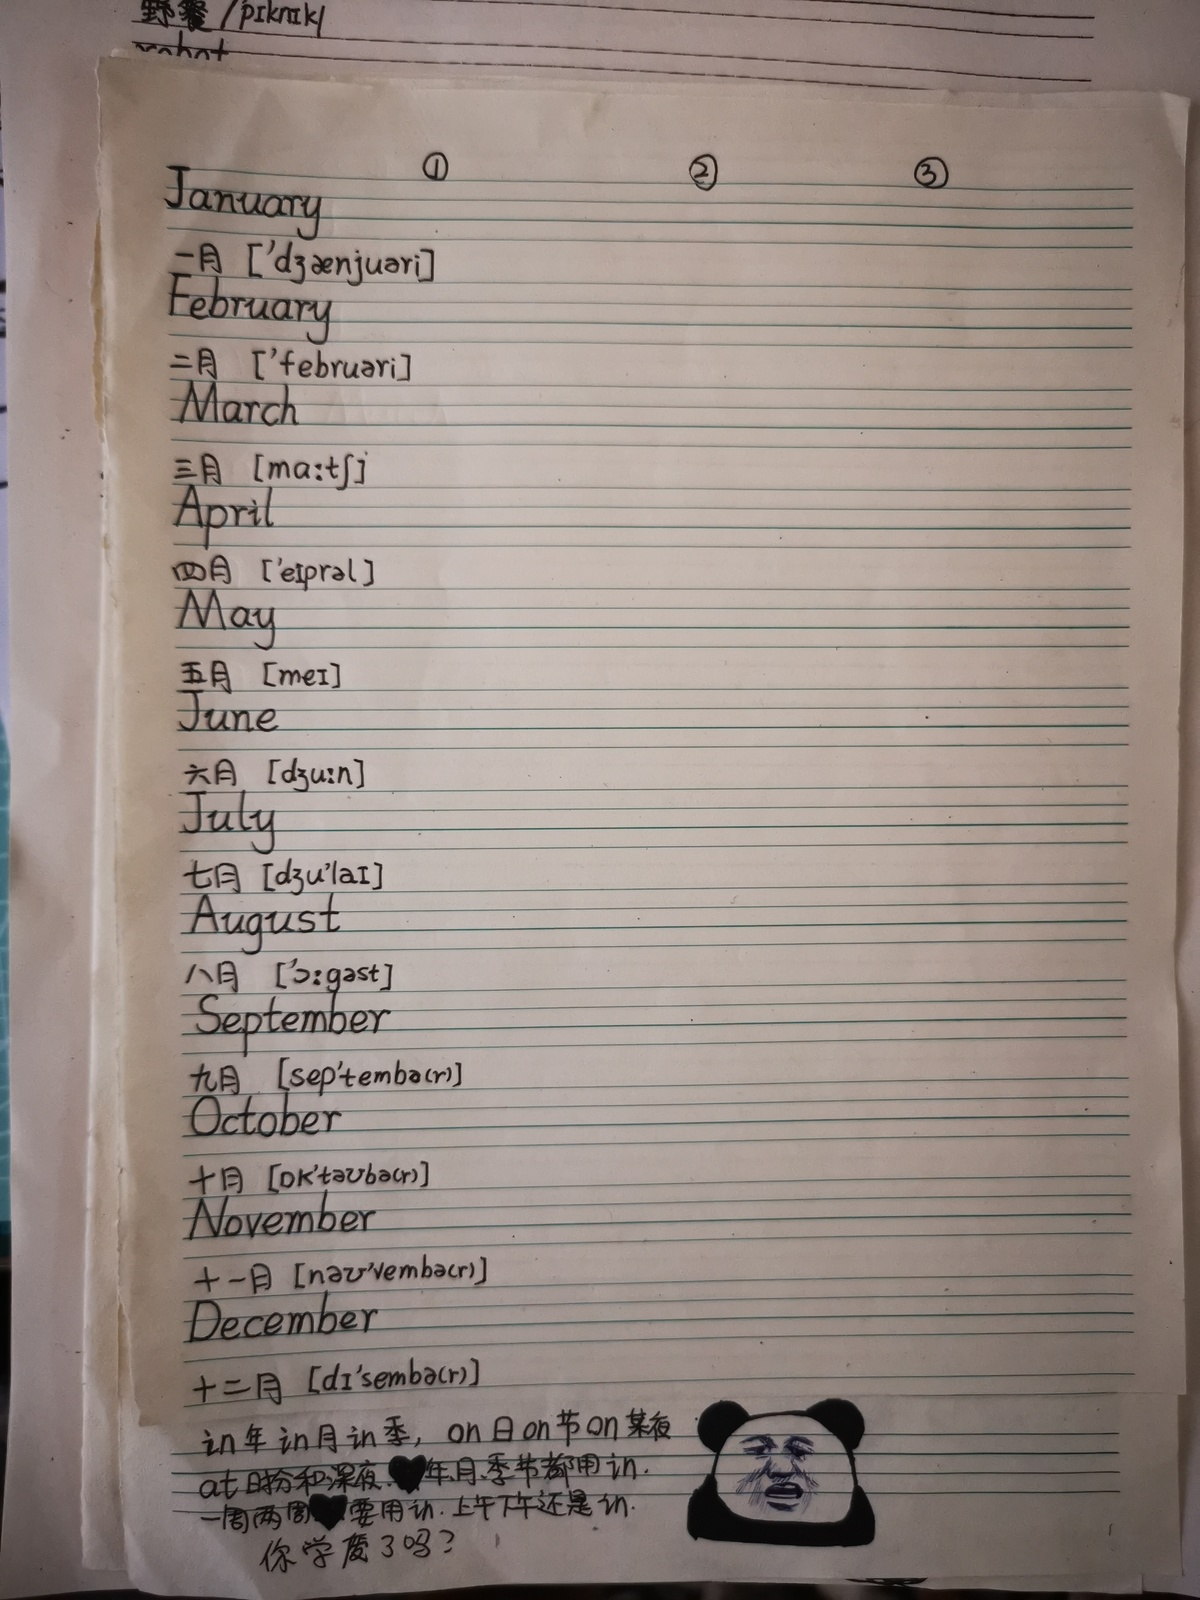 野餐 /pɪknɪk/
robot
① ② ③
January
一月 ['dʒænjuəri]
February
二月 ['februəri]
March
三月 [mɑ:tʃ]
April
四月 ['eɪprəl]
May
五月 [meɪ]
June
六月 [dʒu:n]
July
七月 [dʒu'laɪ]
August
八月 ['ɔ:gəst]
September
九月 [sep'tembə(r)]
October
十月 [ɒk'təʊbə(r)]
November
十一月 [nəʊ'vembə(r)]
December
十二月 [dɪ'sembə(r)]
in年in月in季, on日on节on某夜
at时分和深夜. 年.月.季节都用in.
一周两周 要用in.上午下午还是in.
你学废了吗?